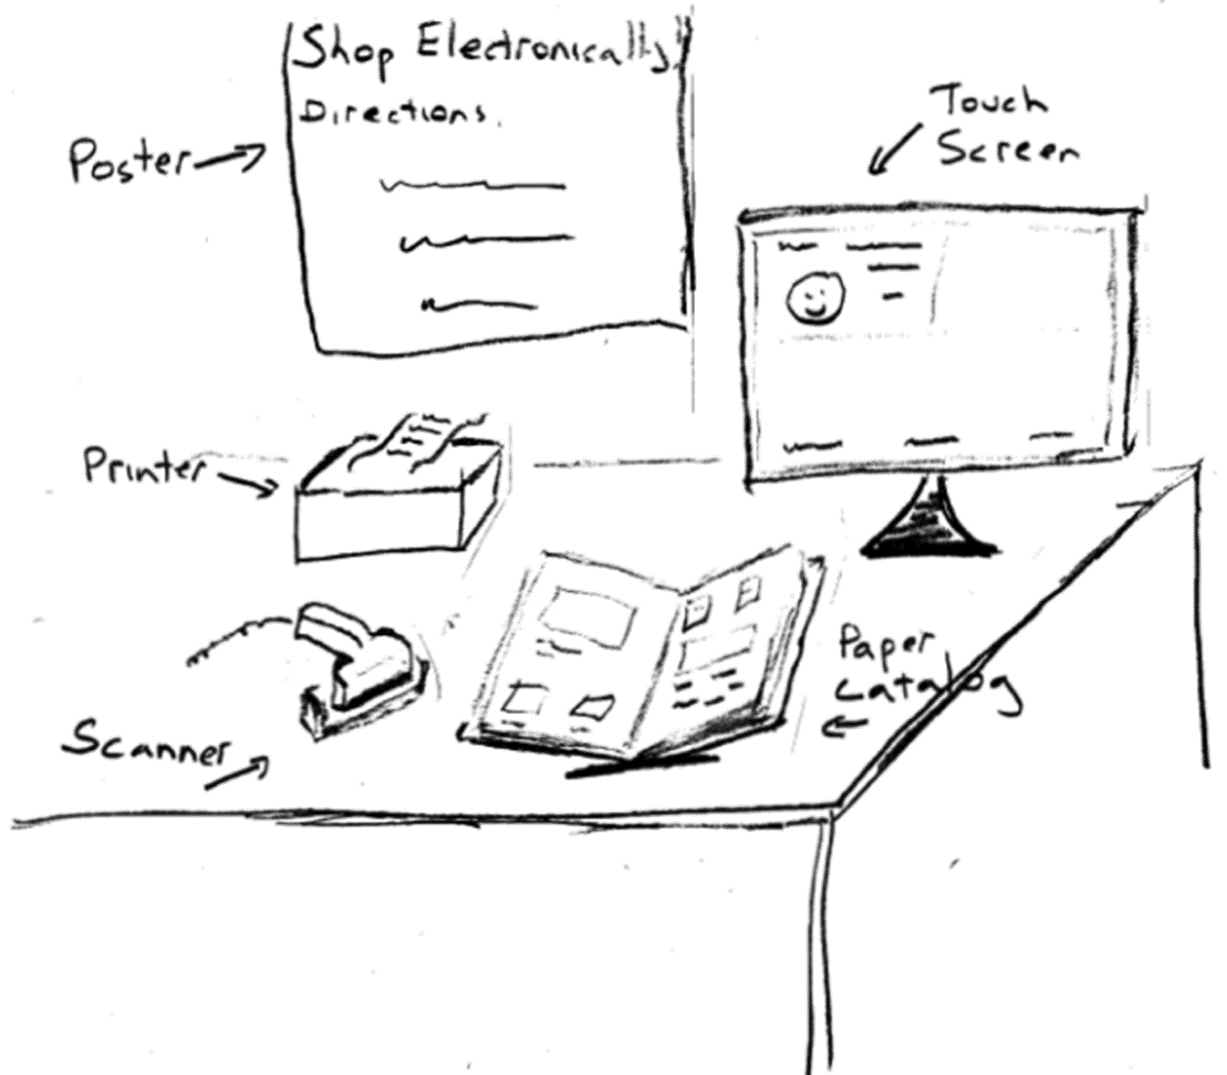 Shop Electronically
Directions.
Poster
Touch
Screen
Printer
Paper
Catalog
Scanner